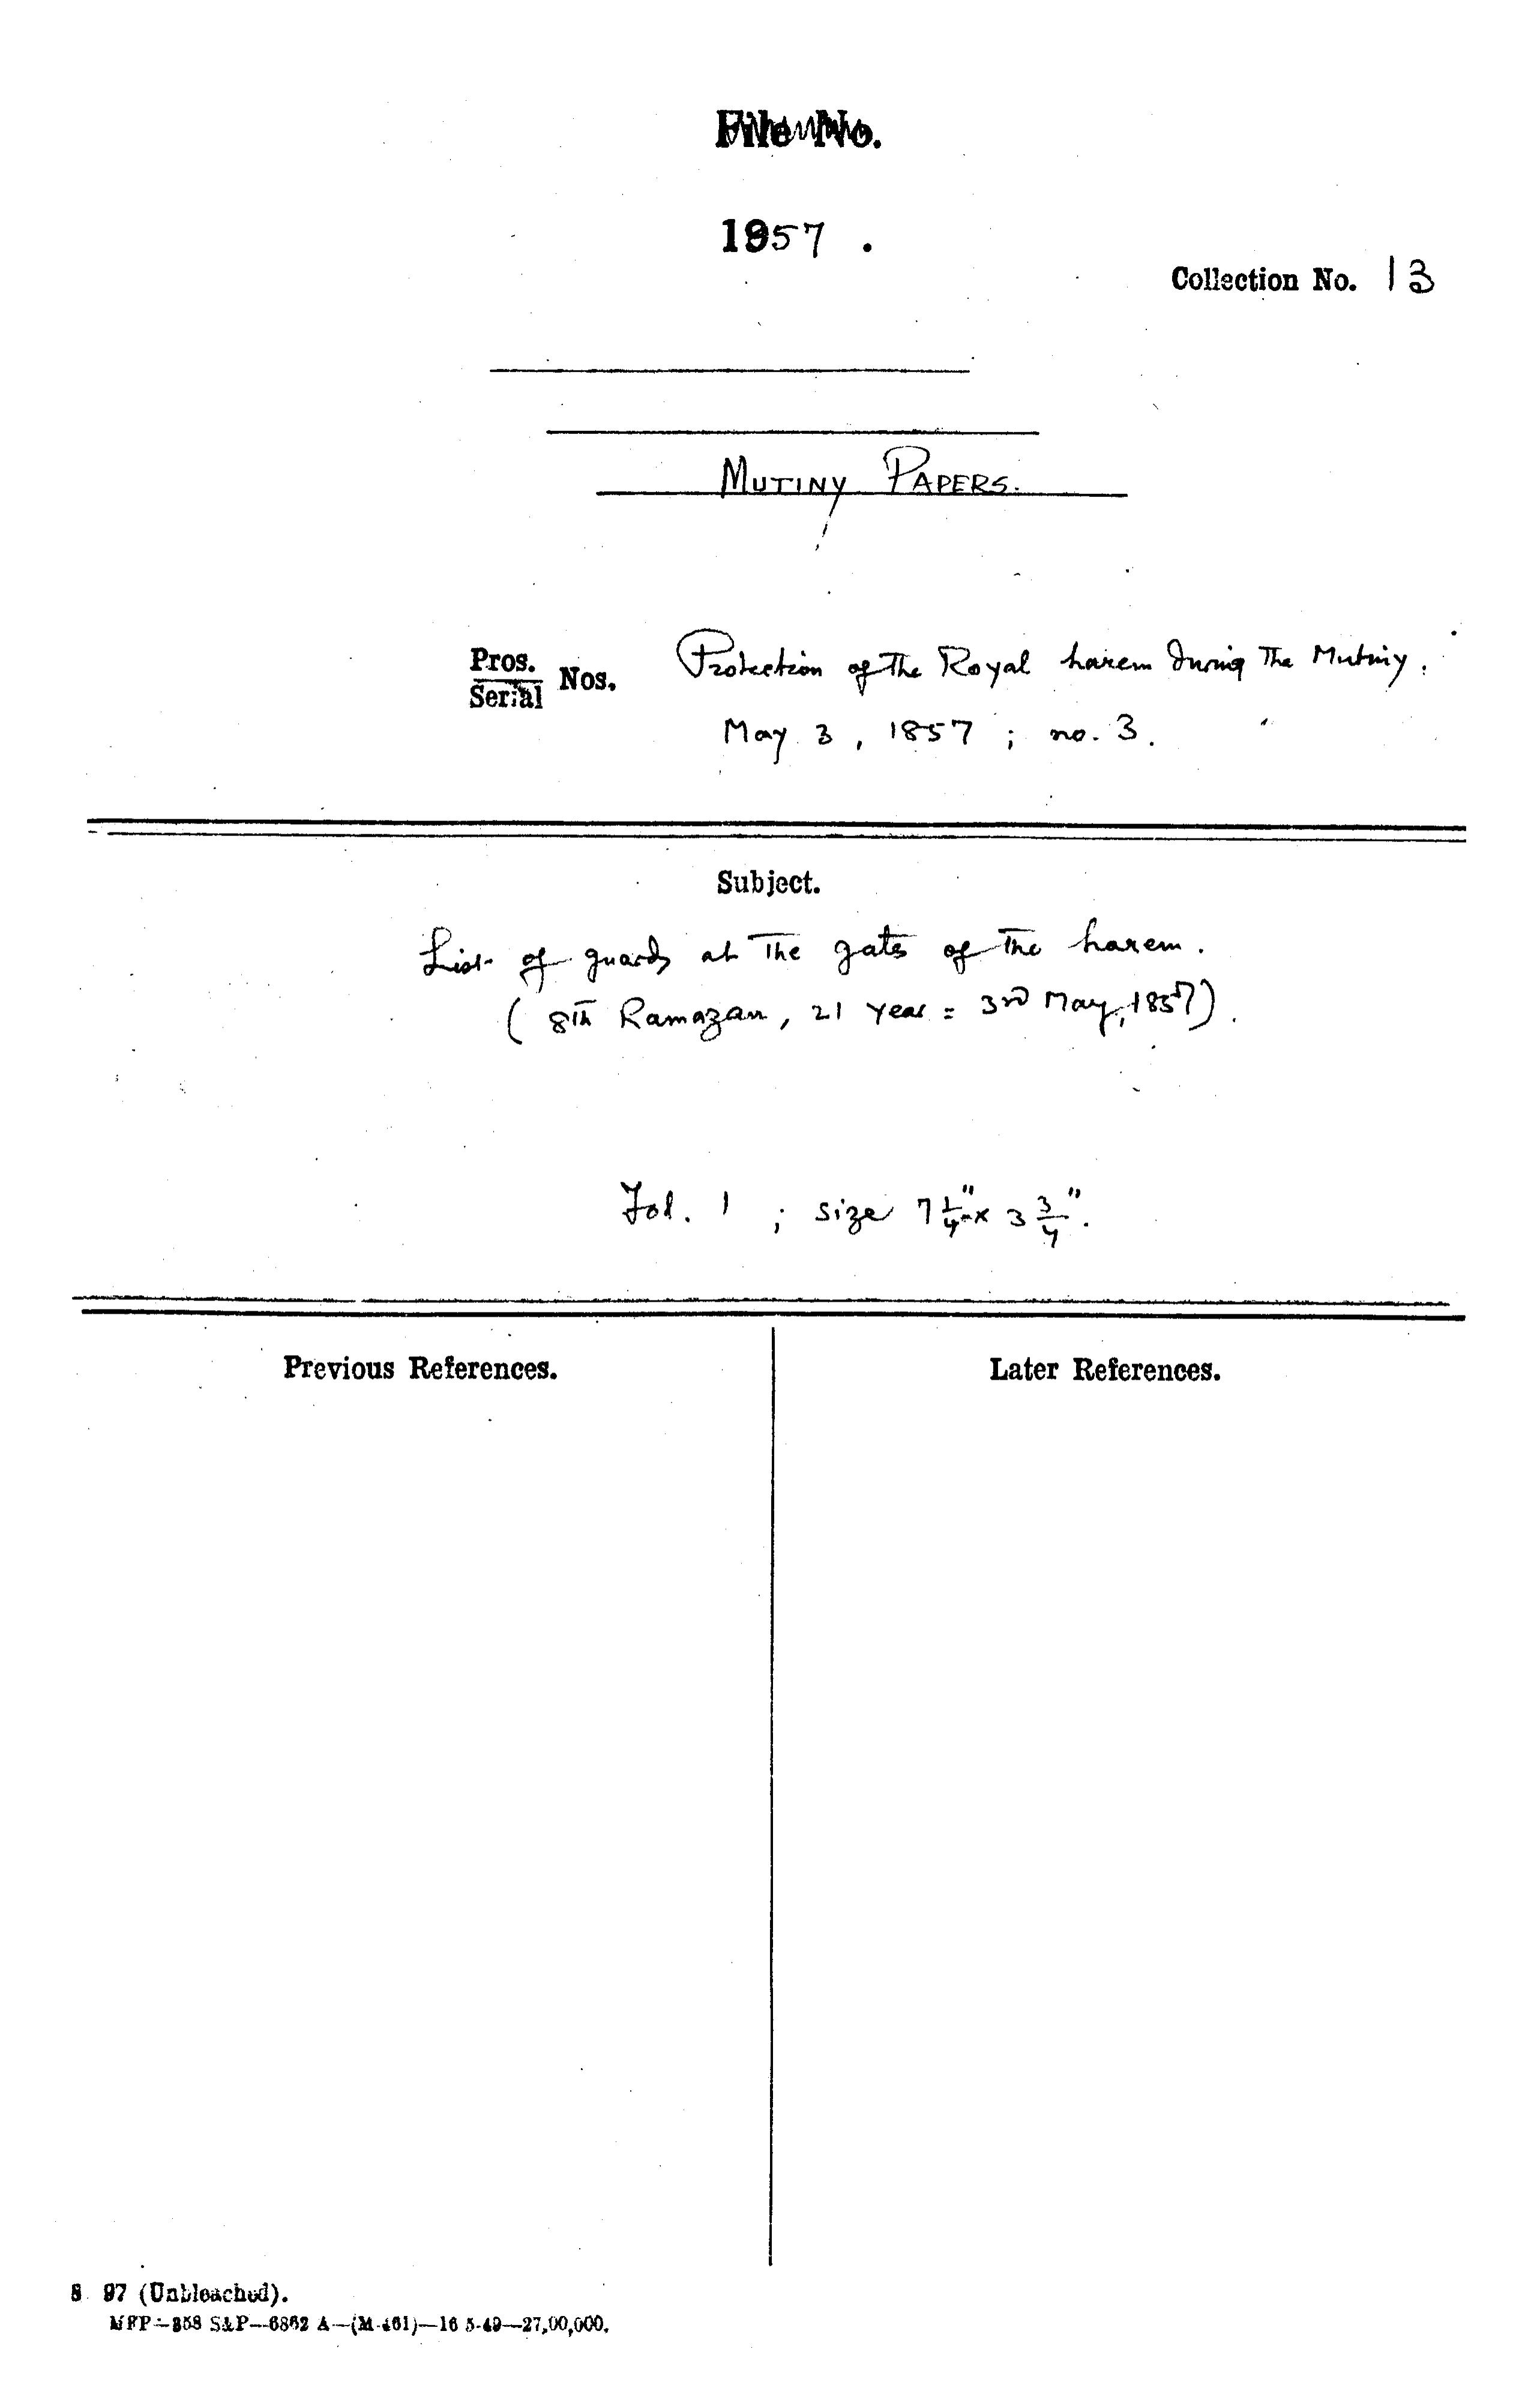 File No.
1857.
Collection No. 13
MUTINY PAPERS.
Pros. Serial Nos. Protection of the Royal harem during the Mutiny.
May 3, 1857 ; no. 3.
Subject.
List of guards at the gates of the harem.
( 8th Ramazan, 21 year = 3rd May, 1857).
Fol. 1 ; size 7 1/4" x 3 3/4".
Previous References.
Later References.
S 97 (Unbleached).
MFP—858 S&P—6862 A—(M-461)—16-5-49—27,00,000.